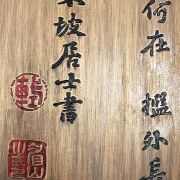 何在 檻外長
東坡居士書